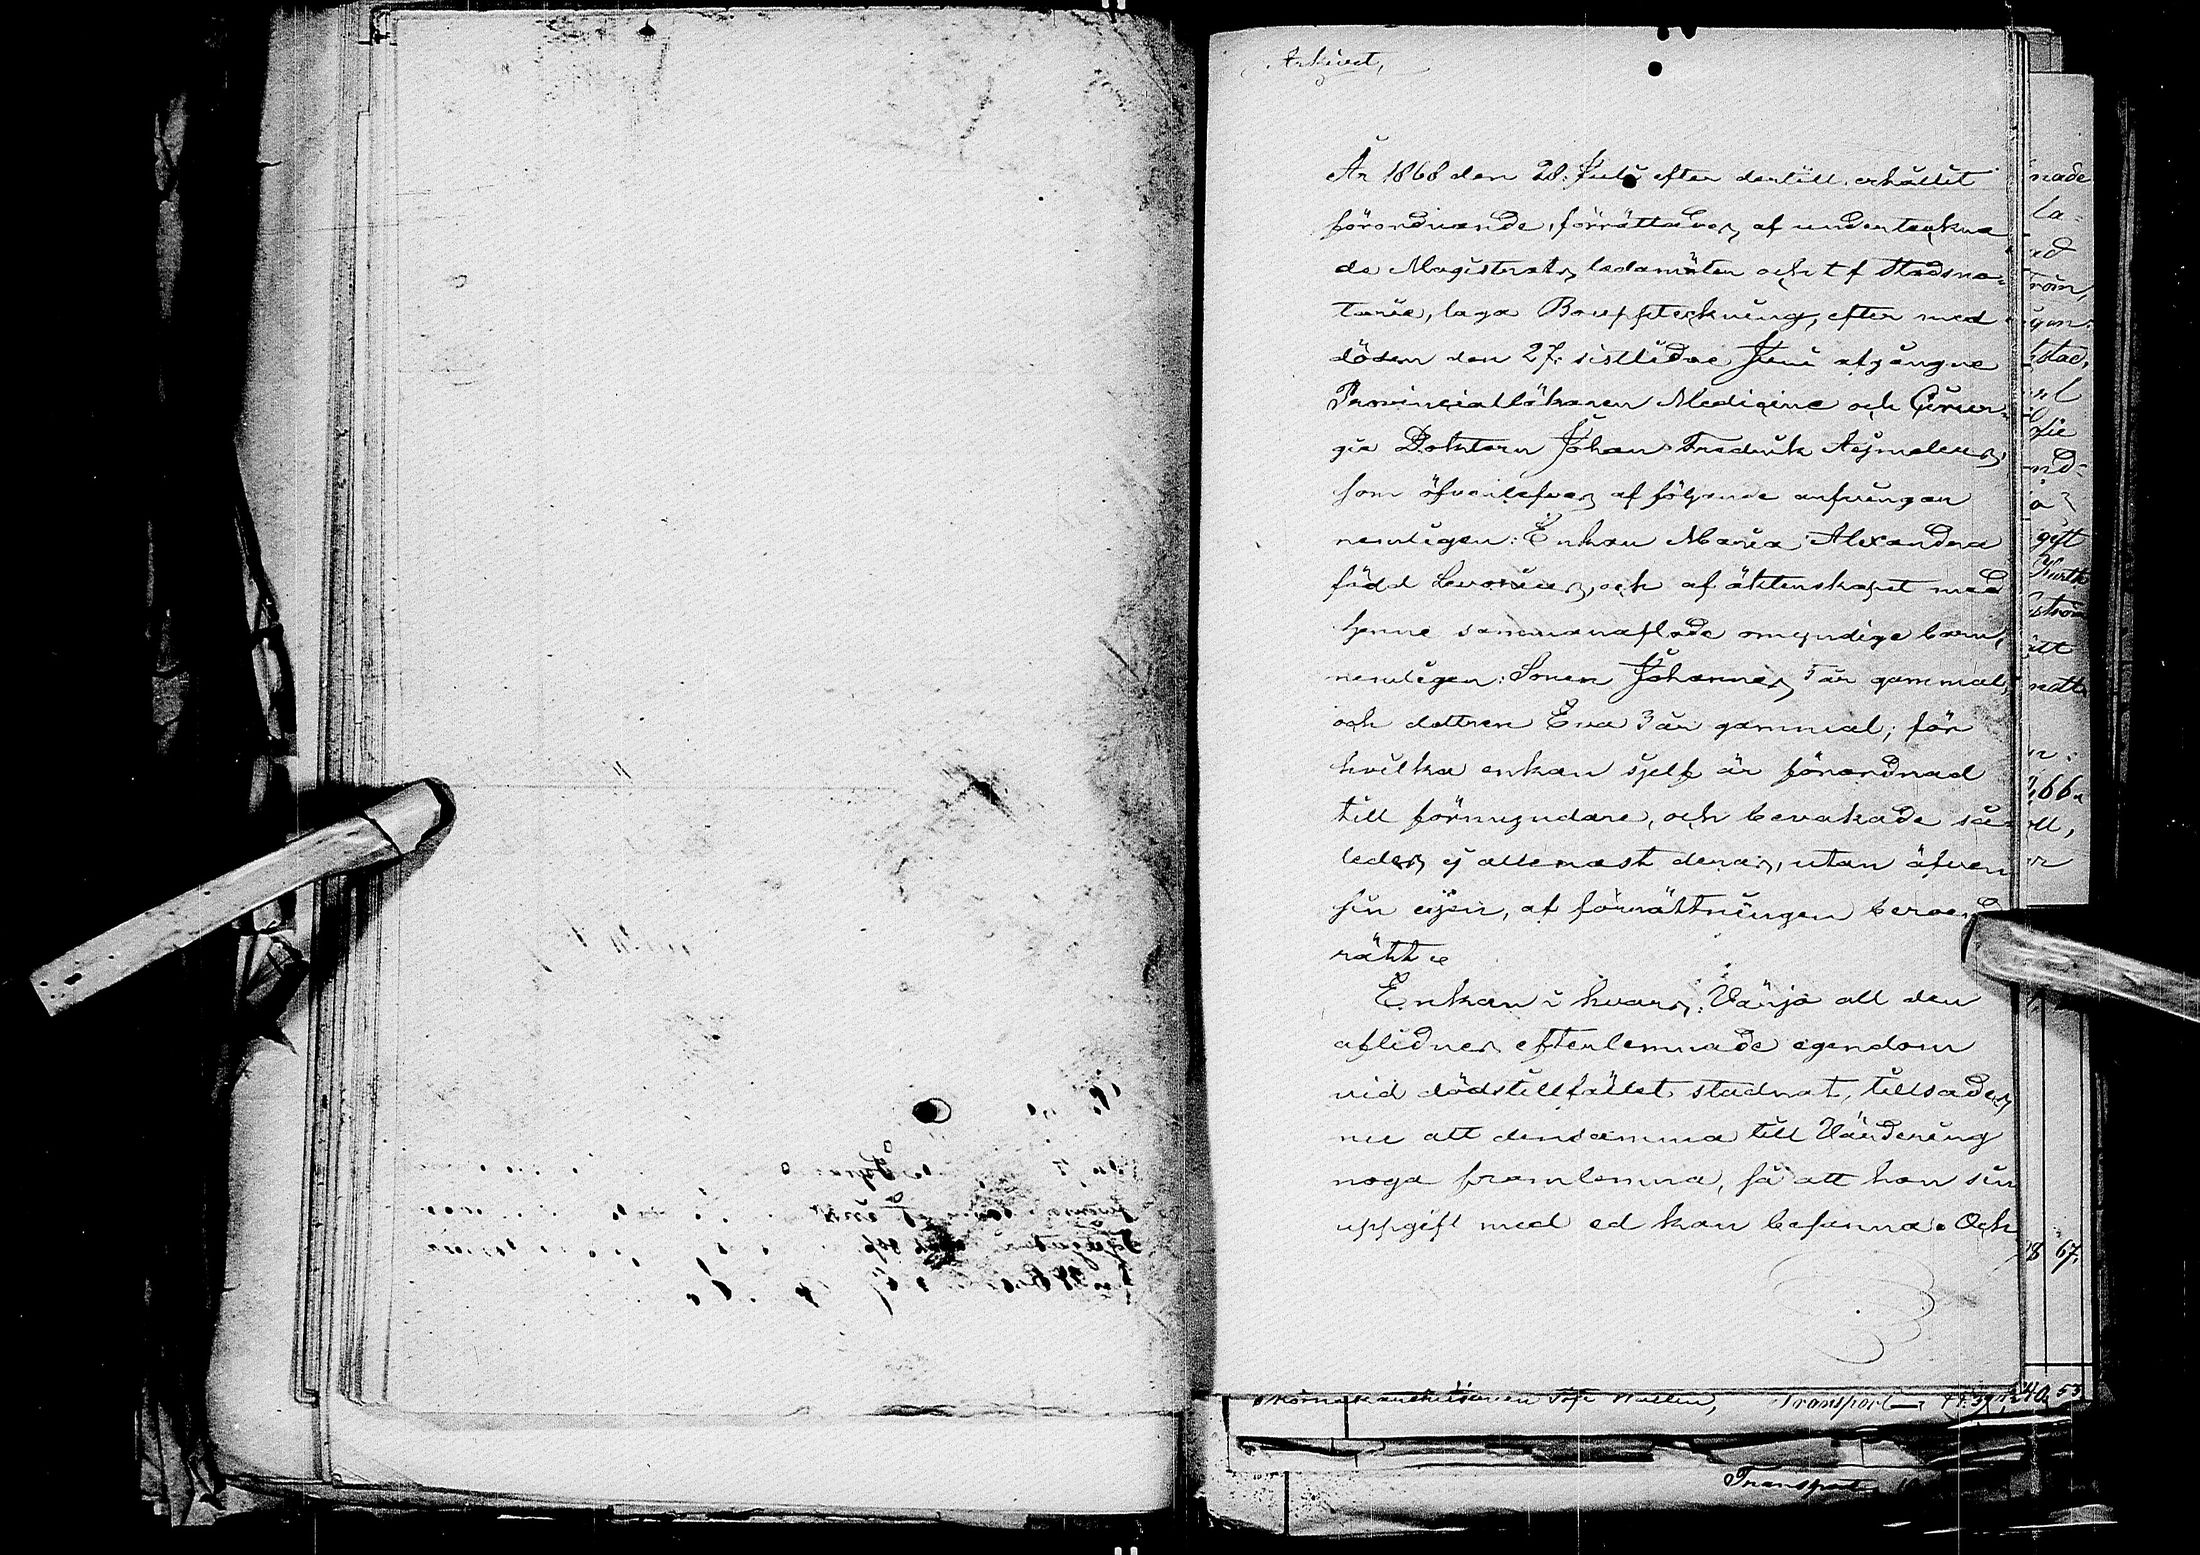 År 1868 den 28. Juli efter dertill erhållet
förordnande, förrättades af underteckna
de Magistrats ledamöter och t f Stadsno-
tarie, laga Bouppteckning, efter med
döden den 27. sistlidne Juni afgångne
Provincialläkaren Medicine och Cirur-
gie Doktorn Johan Fredrik Aejmeleus,
som öfverlefves af följande arfvingar
nemligen: Enkan Maria Alexandra
född Levonius, och af äktenskapet med
henne sammanaflade omyndige barn,
nemligen: Sonen Johannes 5 år gammal,
och dottren Eva 3 år gammal, för
hvilka enkan sjelf är förordnad
till förmyndare, och bevakade så-
ledes ej allenast deras, utan äfven
sin egen, af förrättningen beroend
rätt.
Enkan i hvars värjo all den
aflidnes efterlemnade egendom
vid dödstillfället stadnat, tillsades
nu att densamma till Värdering
noga framlemna, så att hon sin
uppgift med ed kan befinna. Och
nade
la-
ed
röm,
gen
stad,
nd-
gift
ström
att
66.
67.
Wallin, Transport 240 53
Transport